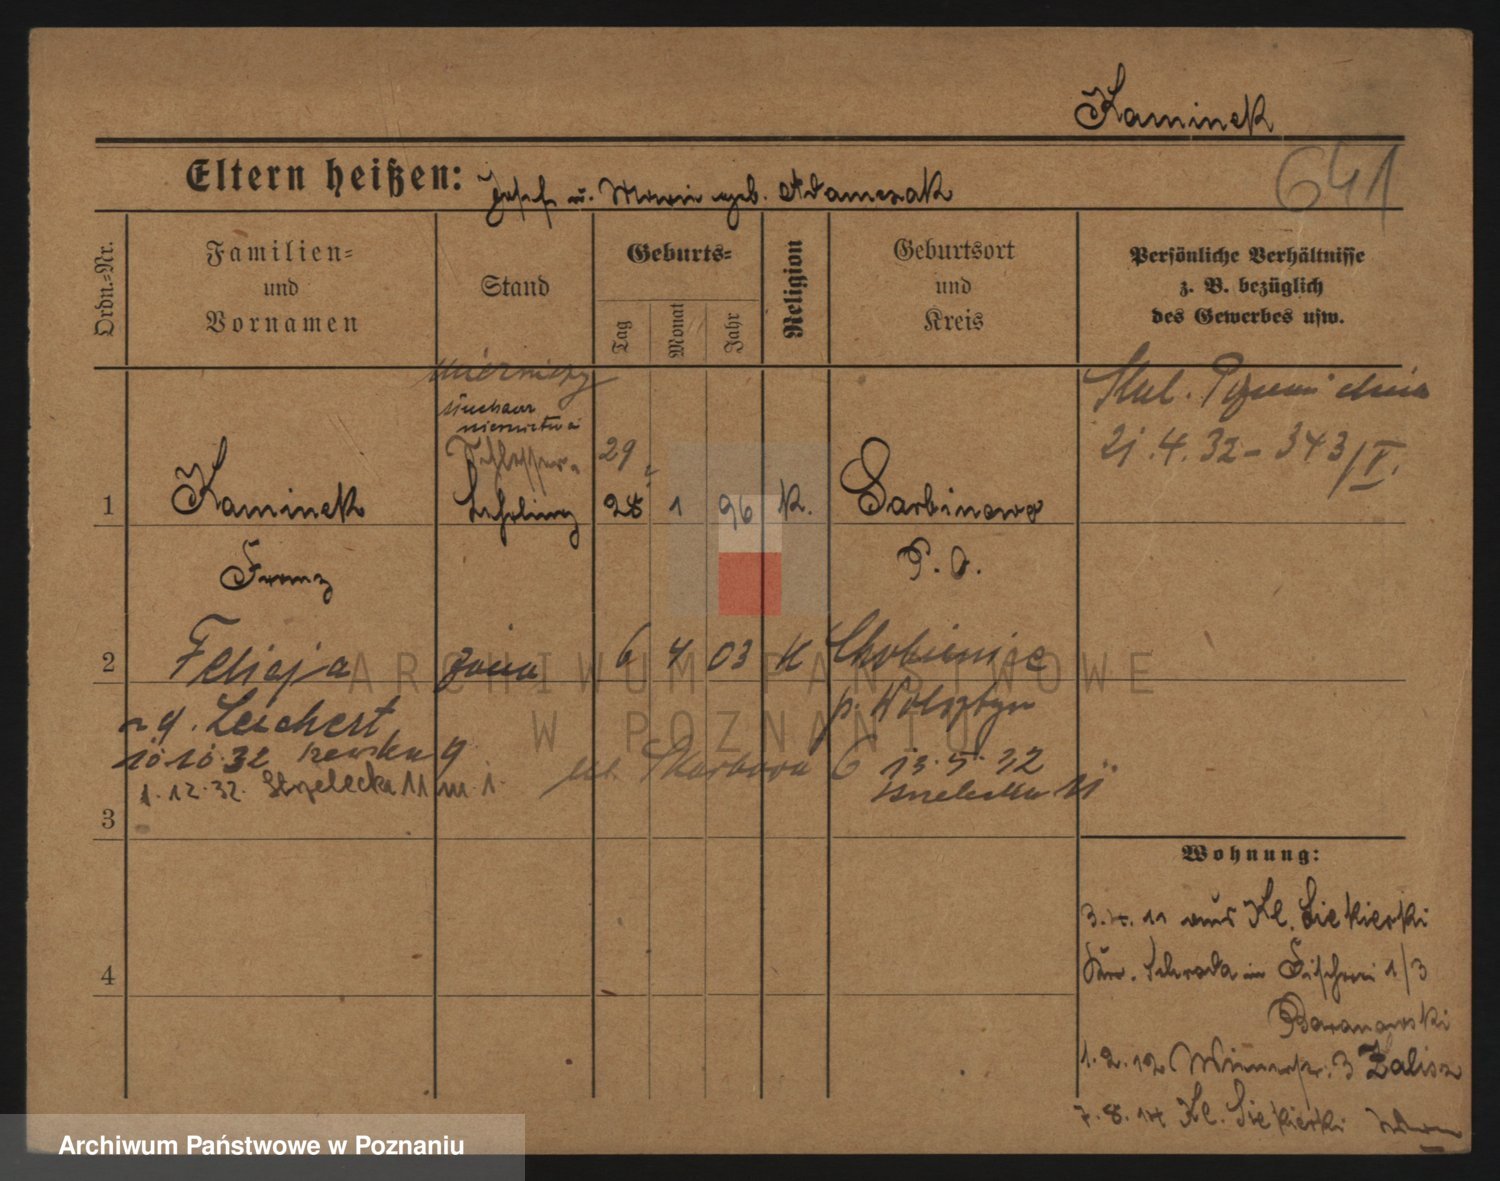 Kaminek
Eltern heißen: Josef u. Maria geb. Adamczak
641
Ordn.=Nr.
Familien=
und
Vornamen
Stand
Geburts=
Tag
Monat
Jahr
Religion
Geburtsort
und
Kreis
Persönliche Verhältnisse
z. B. bezüglich
des Gewerbes usw.
21.4.32 - 343/I.
Schlosser-
29
1
Kaminek
Lehrling
28
1
96
K.
Sarbinowo
Franz
P. O.
2
Felicja
żona
6
4
03
K
Chobienice
p. Wolsztyn
Leichert
10 10 32
ul. Skarbowa 6 13.5.32
1.12.32. Strzelecka 11 m 1.
Strzelecka 11
3
Wohnung:
3.4.11 aus Kl. Siekierki
Schroda in Fischerei 1/3
Baranowski
4
1.2.12 3 Zalisz
7.8.14 Kl. Siekierki
ARCHIWUM PAŃSTWOWE
W POZNANIU
Archiwum Państwowe w Poznaniu